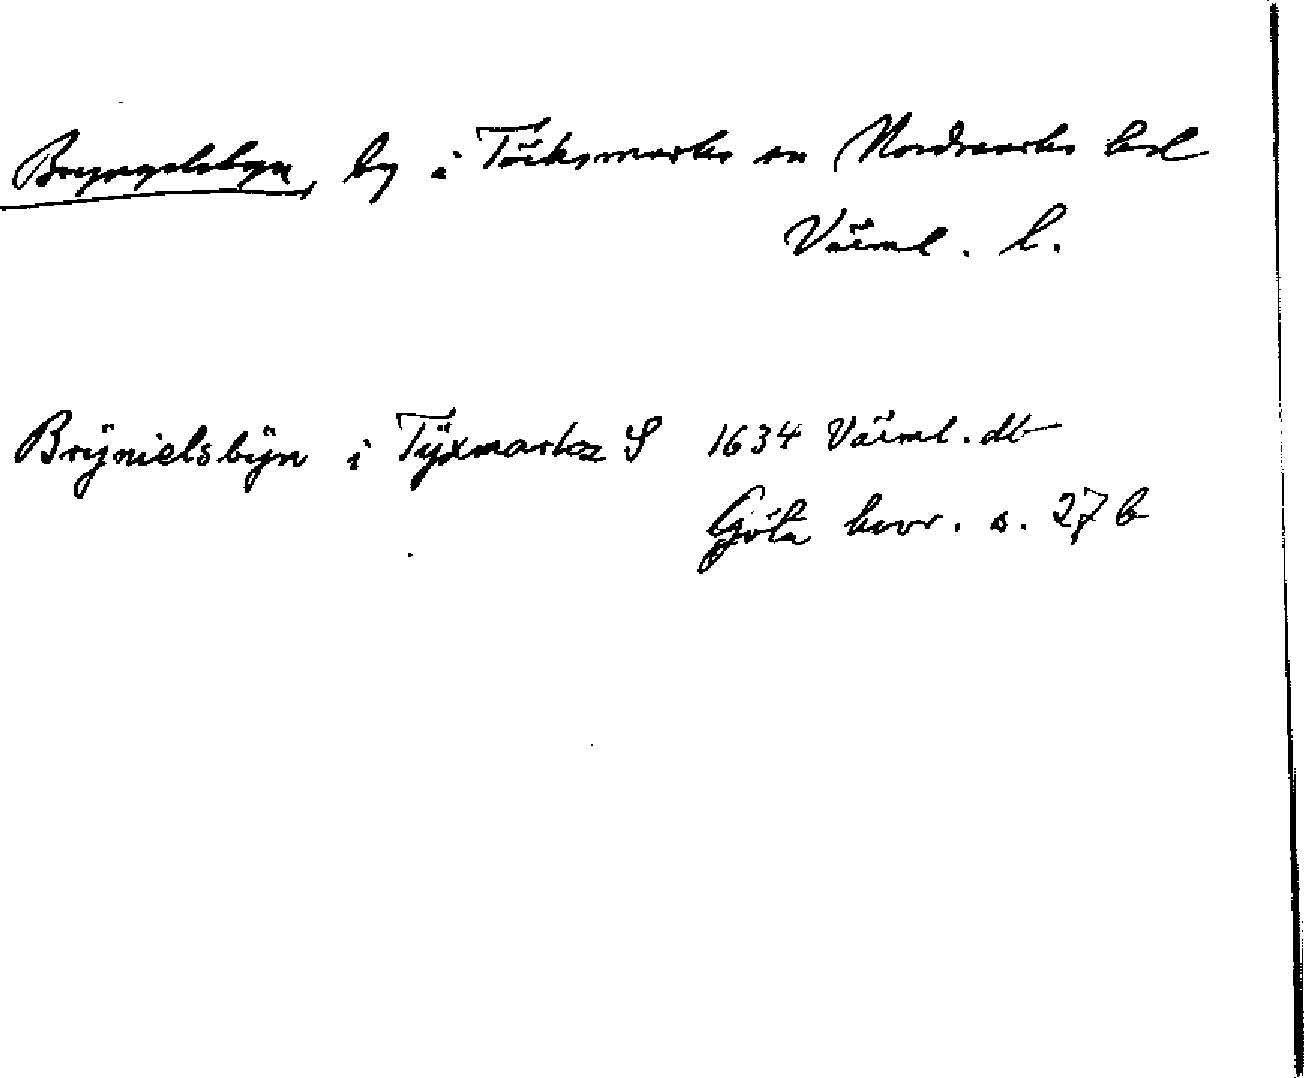 Bryngelsbyn, by i Töcksmarks sn Nordmarks hd
Värml. l.
Brÿnielsbÿn i Tÿxmarkz S 1634 Värml. db
Göta hovr. s. 27 b